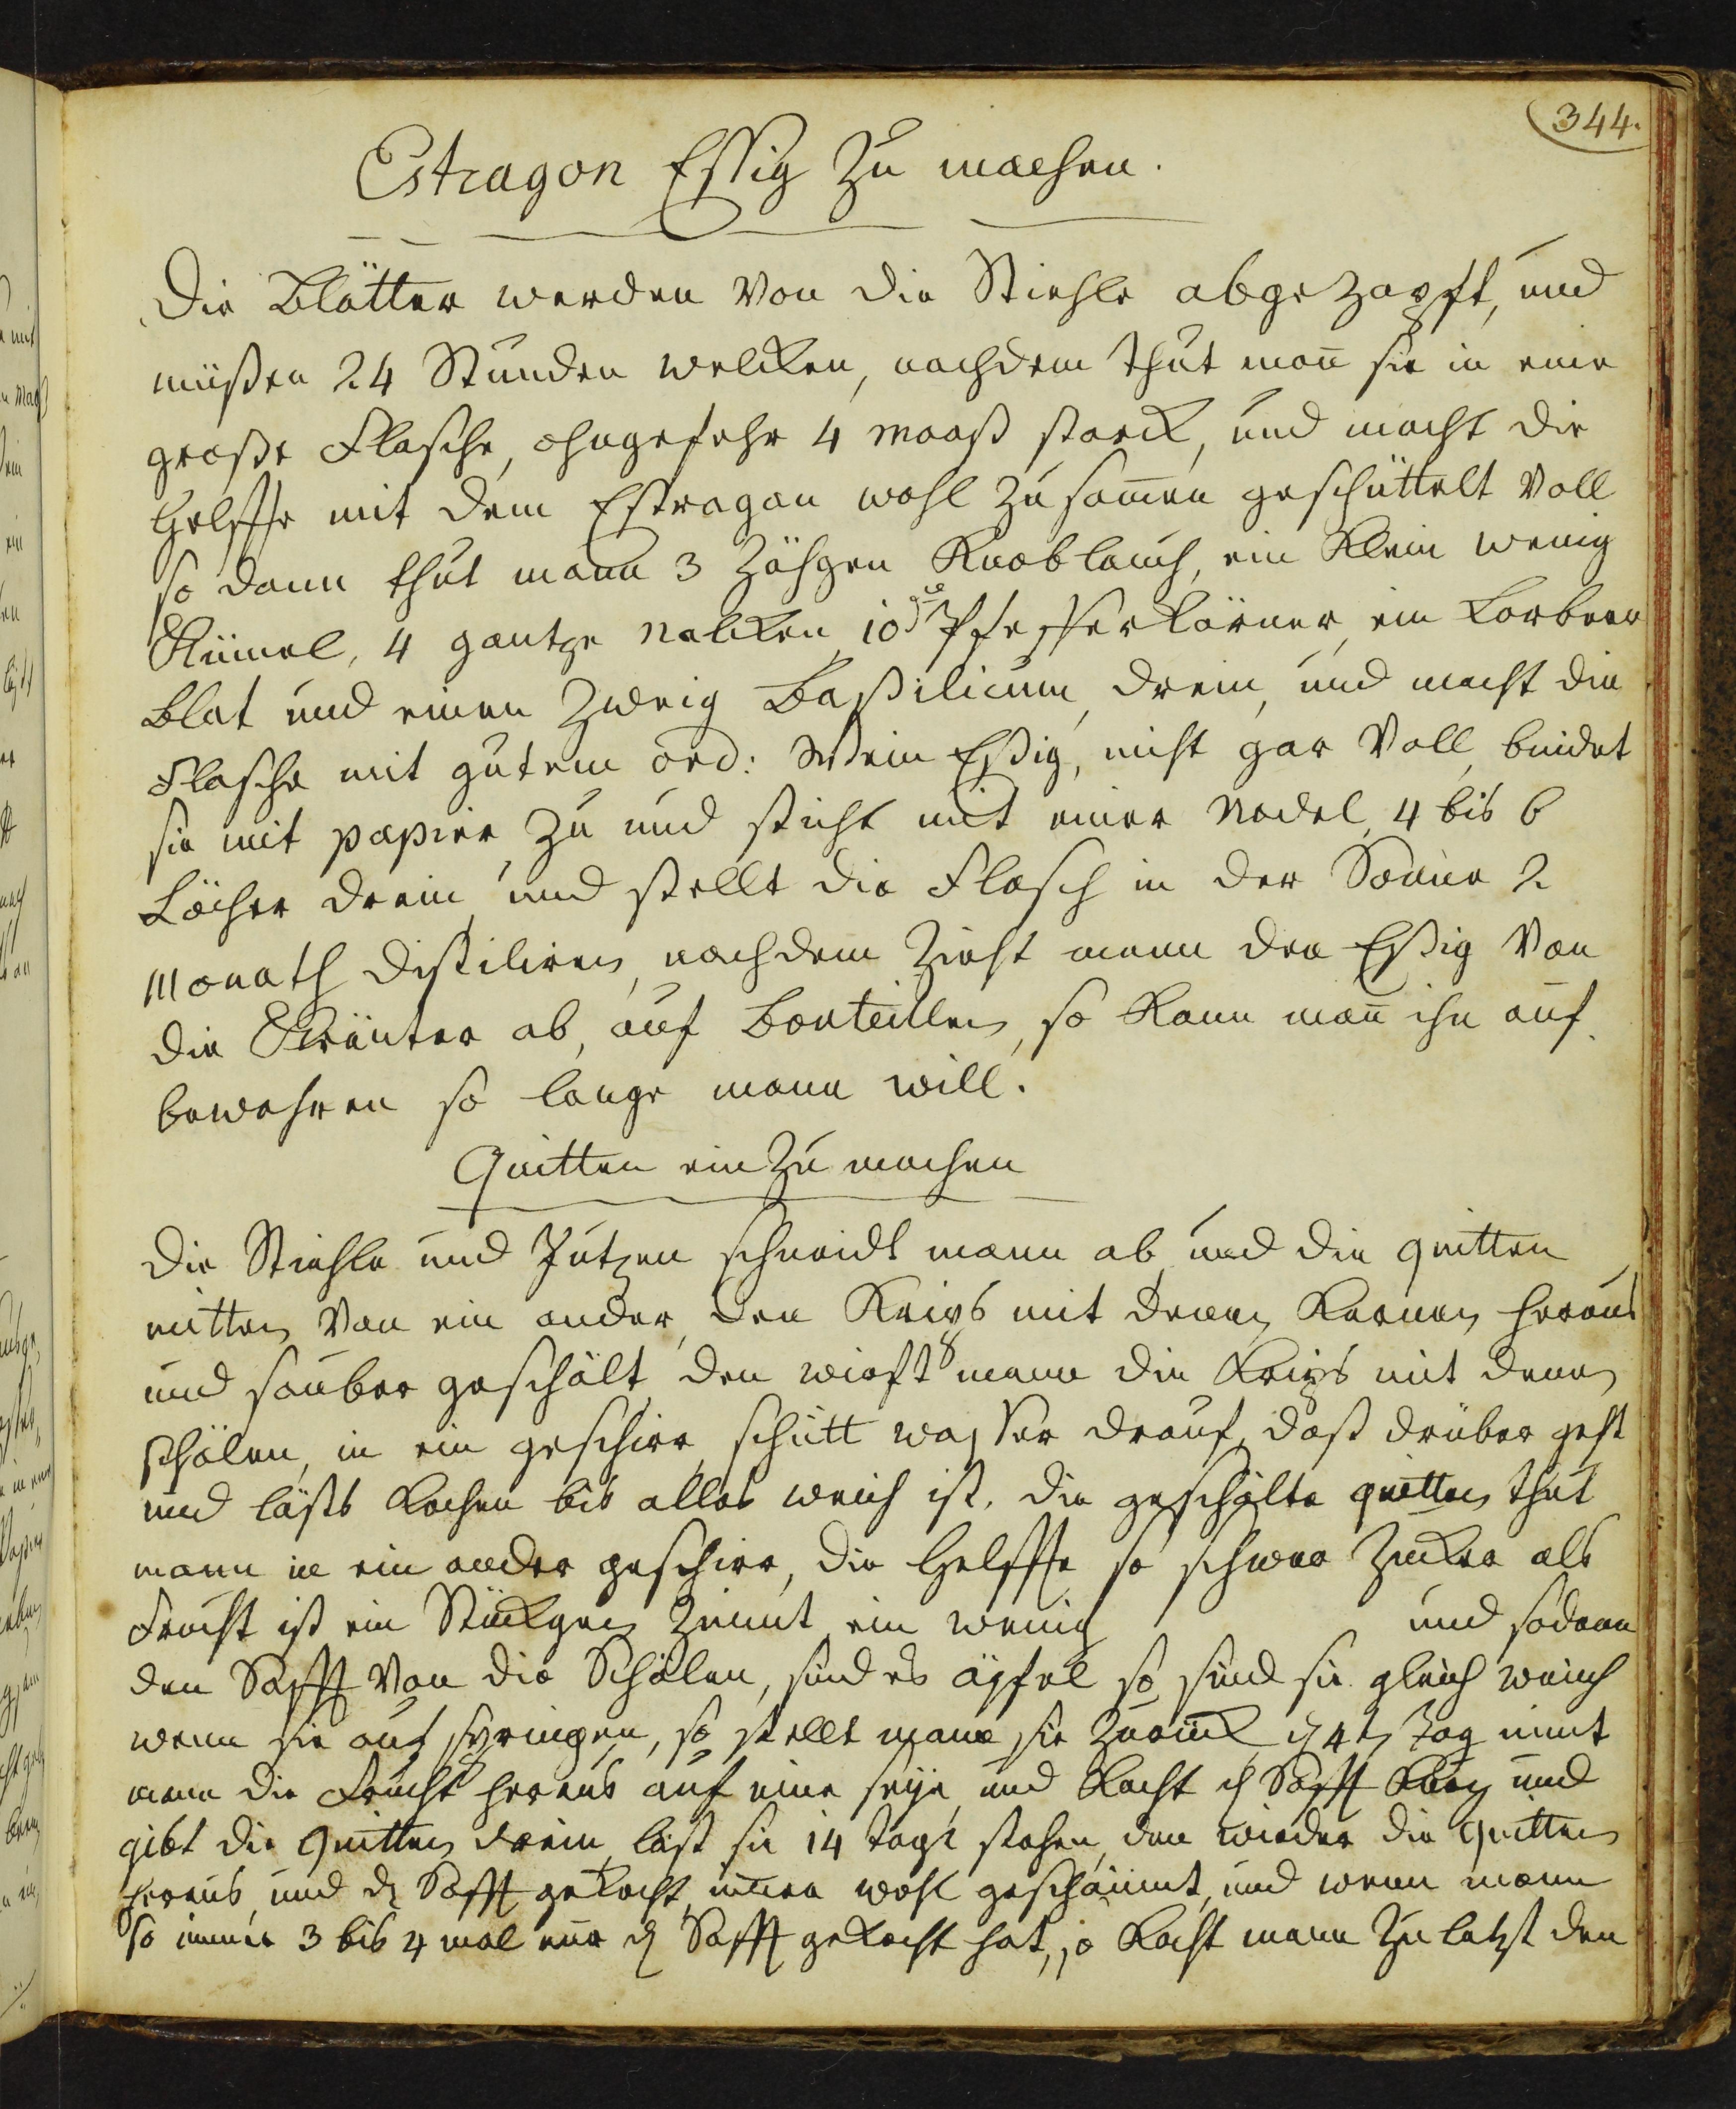 344.
Estragon Essig zu machen.
Die Blätter werden von die Stiehle abgezopft, und
müßen 24 Stunden welcken, nachdem thut man̄ sie in eine
große Flasche, ohngefehr 4 Maaß starck, und macht die
Helffte mit dem Estragon wohl zusam̄en geschüttelt voll
so dann thut mann 3 Zähgen Knoblauch, ein klein wenig
Küm̄el, 4 gantze Nelcken, 10 Pfefferkörner, ein Lorbeer
Blat und einen Zweig Baßilicum, drein, und macht die
Flasche mit gutem ord: Wein Eßig, nicht gar voll, bindet
sie mit papier zu und sticht mit einer Nadel, 4 bis 6
Löcher drein, und stellt die Flasch in der Sonne 2
Monath distiliren, nachdem zieht mann den Eßig von
die Kräuter ab, auf Bouteillen, so kann man̄ ihn auf
bewahren so lange mann will.
Quitten ein Zu machen
Die Stiehle und Putzen schneidt mann ab und die quitten
mitten von ein ander, den Krips mit denen Kernen heraus
und sauber geschält, den wirft mann die Krips mit denen
schälen, in ein geschirr, schütt wasser drauf, daß drüber geht
und läßts kochen bis alles weich ist, die geschälte quitten thut
mann in ein ander geschirr, die Helffte so schwer Zucker als
Frucht ist ein Stückgen Zimmt ein wenig und sodann
den Safft von die Schälen, sind es äpfel so sind sie gleich weich
wenn sie auf springen, so stellt mann sie zurück, d 4t Tag nimt
mann die Frucht heraus auf eine seye, und kocht d Safft und
gibt die Quitten drein, läst sie 14 tage stehen, den wieder die Quitten
heraus, und d Safft gekocht, immer wohl geschäumt, und wenn mann
so immer 3 bis 4 mal nur d Safft gekocht hat, so kocht mann zu letzt den